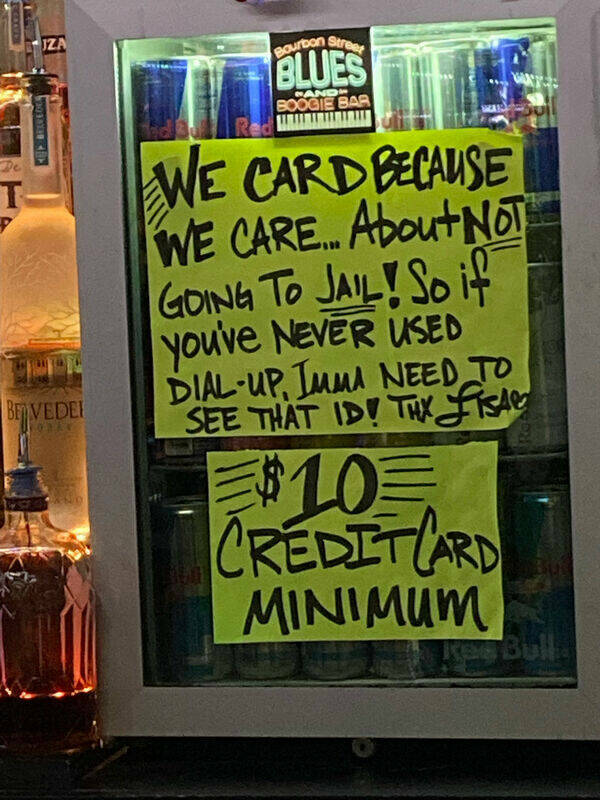 Bourbon Street
BLUES
AND
BOOGIE BAR
WE CARD BECAUSE
WE CARE... About NOT
GOING TO JAIL! So if
you've NEVER USED
DIAL-UP, IMMA NEED TO
SEE THAT ID! THX Lisa
$10
CREDIT CARD
MINIMUM
Red Bull